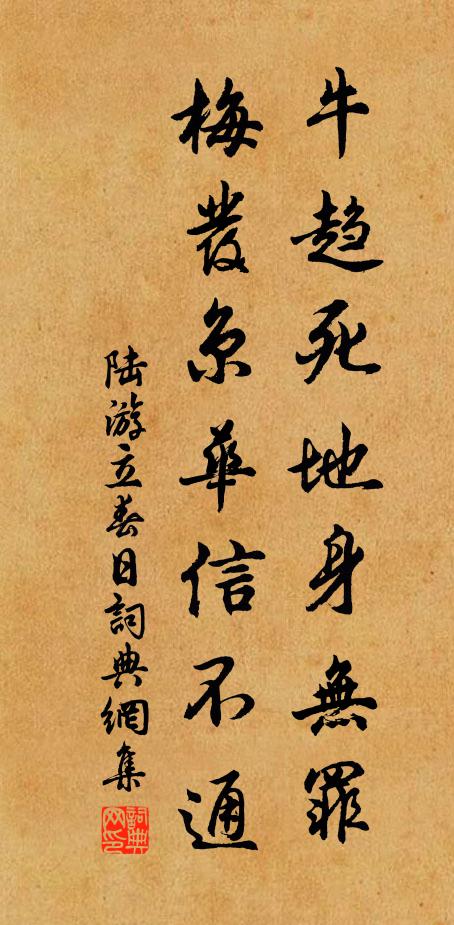 牛趋死地身無罪
梅發京華信不通
陸游立春日詞典網集
詞典网印